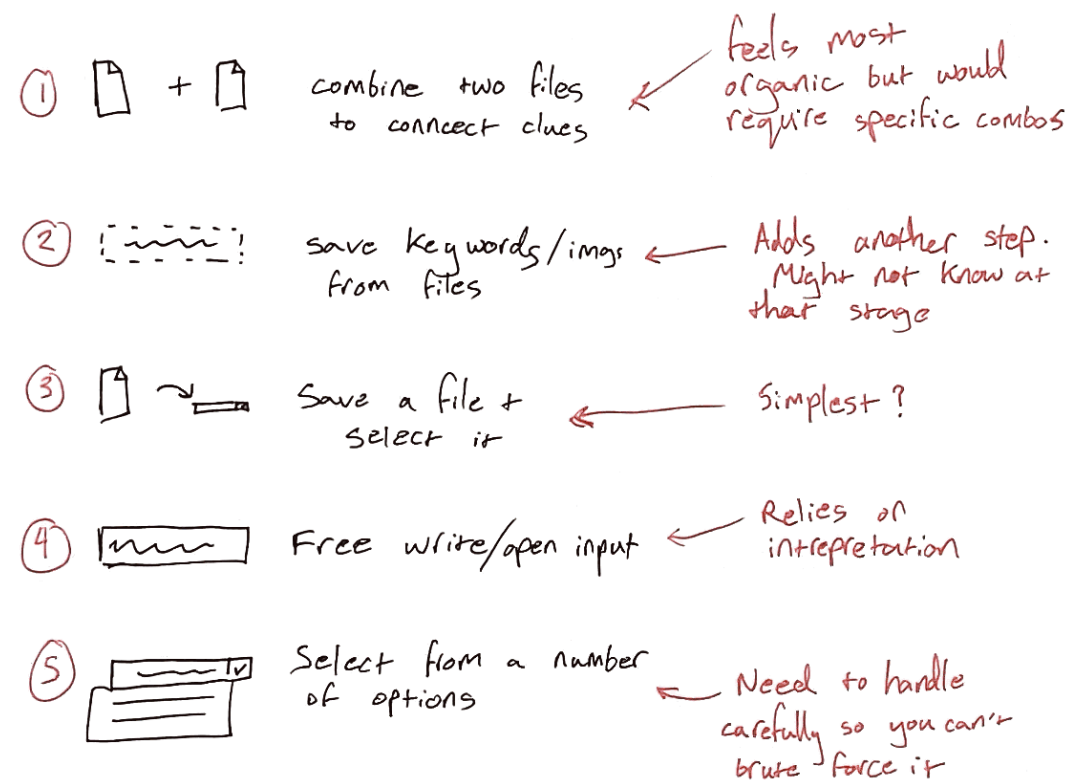 1
+
combine two files
to conncect clues
feels most
organic but would
require specific combos
2
save keywords/imgs
from files
Adds another step.
Might not know at
that stage
3
Save a file +
select it
Simplest?
4
Free write/open input
Relies on
intrepretation
5
Select from a number
of options
Need to handle
carefully so you can't
brute force it